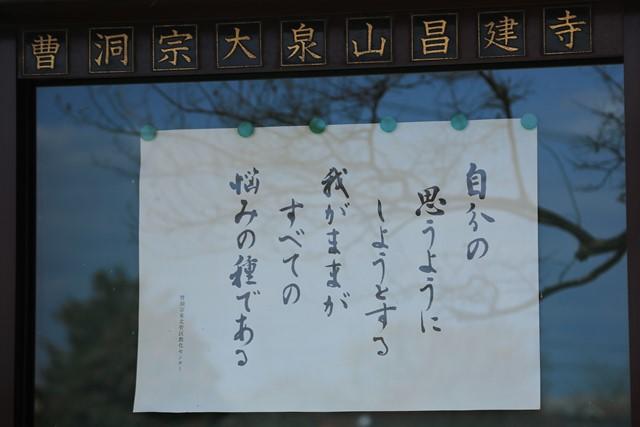 曹洞宗大泉山昌建寺
自分の
思うように
しようとする
我がままが
すべての
悩みの種である